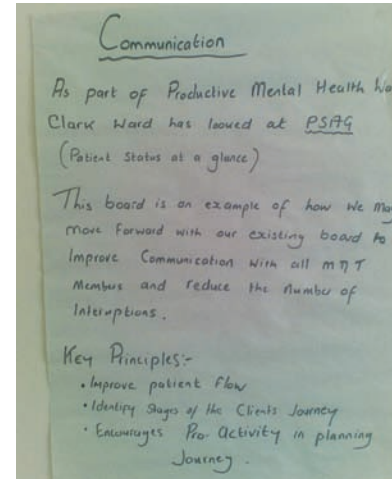 Communication
As part of Productive Mental Health Wa
Clark Ward has looked at PSAG
(Patient Status at a glance)
This board is an example of how we may
move Forward with our existing board to
Improve Communication with all MDT
Members and reduce the Number of
Interruptions.
Key Principles:-
• Improve patient Flow
• Identify Stages of the Clients Journey
• Encourages Pro-Activity in planning
Journey.